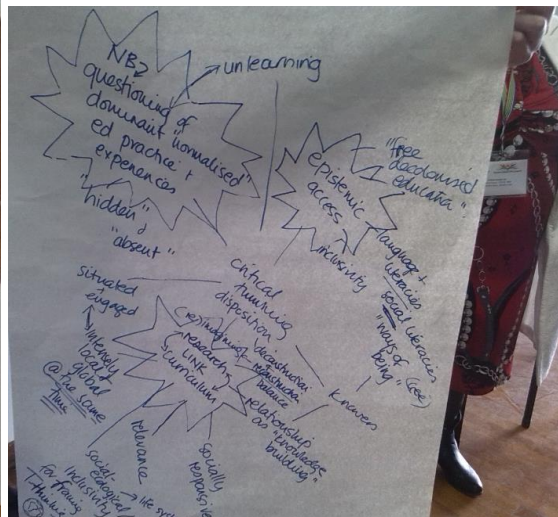 NB?
questioning of
dominant "normalised"
ed practice +
experiences
unlearning
"hidden"
"absent"
epistemic
access
inclusivity
"Free
decolonised
education"
language +
literacies
social literacies
"ways of
being"
critical
thinking
disposition
situated
engaged
intensely
local +
global
@ the same
time
research
LINK
curriculum
deconstruction
reconstruction
balance
relationship
as "knowledge
building"
knowers
relevance
socially
social-
ecological
inclusivity
for framing